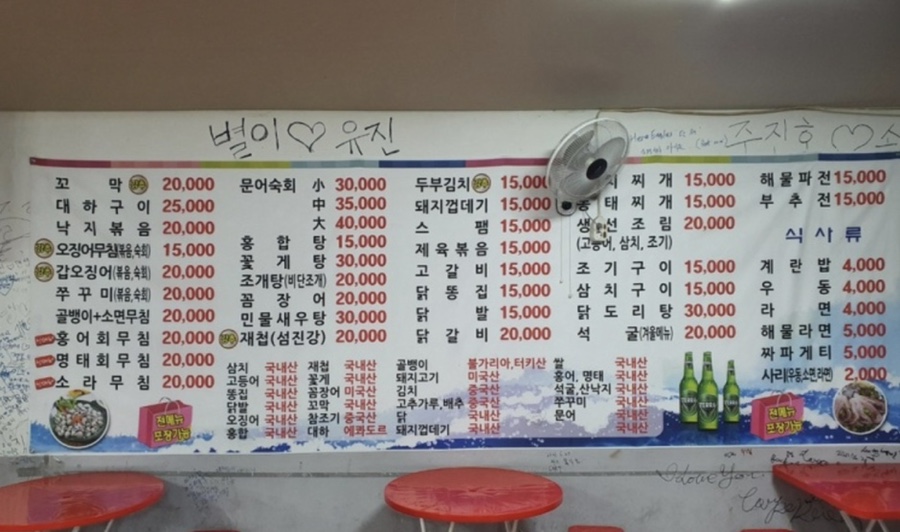 별이♡유진
주진호 ♡
꼬 막 20,000
대 하 구 이 25,000
낙 지 볶 음 20,000
오징어무침(볶음,숙회) 15,000
갑오징어(볶음,숙회) 20,000
쭈 꾸 미(볶음,숙회) 20,000
골뱅이+소면무침 20,000
홍 어 회 무 침 20,000
명 태 회 무 침 20,000
소 라 무 침 20,000
문어숙회 小 30,000
中 35,000
大 40,000
홍 합 탕 15,000
꽃 게 탕 30,000
조개탕(비단조개) 20,000
꼼 장 어 20,000
민 물 새 우 탕 30,000
재첩(섬진강) 20,000
두부김치 15,000
돼지껍데기 15,000
스 팸 15,000
제 육 볶 음 15,000
고 갈 비 15,000
닭 똥 집 15,000
닭 발 15,000
닭 갈 비 20,000
찌 개 15,000
태 찌 개 15,000
생 선 조 림 20,000
(고등어, 삼치, 조기)
조 기 구 이 15,000
삼 치 구 이 15,000
닭 도 리 탕 30,000
석 굴(겨울메뉴) 20,000
해 물 파 전 15,000
부 추 전 15,000
식 사 류
계 란 밥 4,000
우 동 4,000
라 면 4,000
해 물 라 면 5,000
짜 파 게 티 5,000
사리(우동,소면,라면) 2,000
삼치 국내산
고등어 국내산
똥집 국내산
닭발 국내산
오징어 국내산
홍합 국내산
재첩 국내산
꽃게 국내산
꼼장어 미국산
꼬막 국내산
참조기 중국산
대하 에콰도르
골뱅이 불가리아,터키산
돼지고기 미국산
김치 중국산
고추가루,배추 중국산
닭 국내산
돼지껍데기 국내산
쌀 국내산
홍어, 명태
석굴,산낙지 국내산
쭈꾸미
문어 국내산
전메뉴
포장가능
전메뉴
포장가능
I Love You